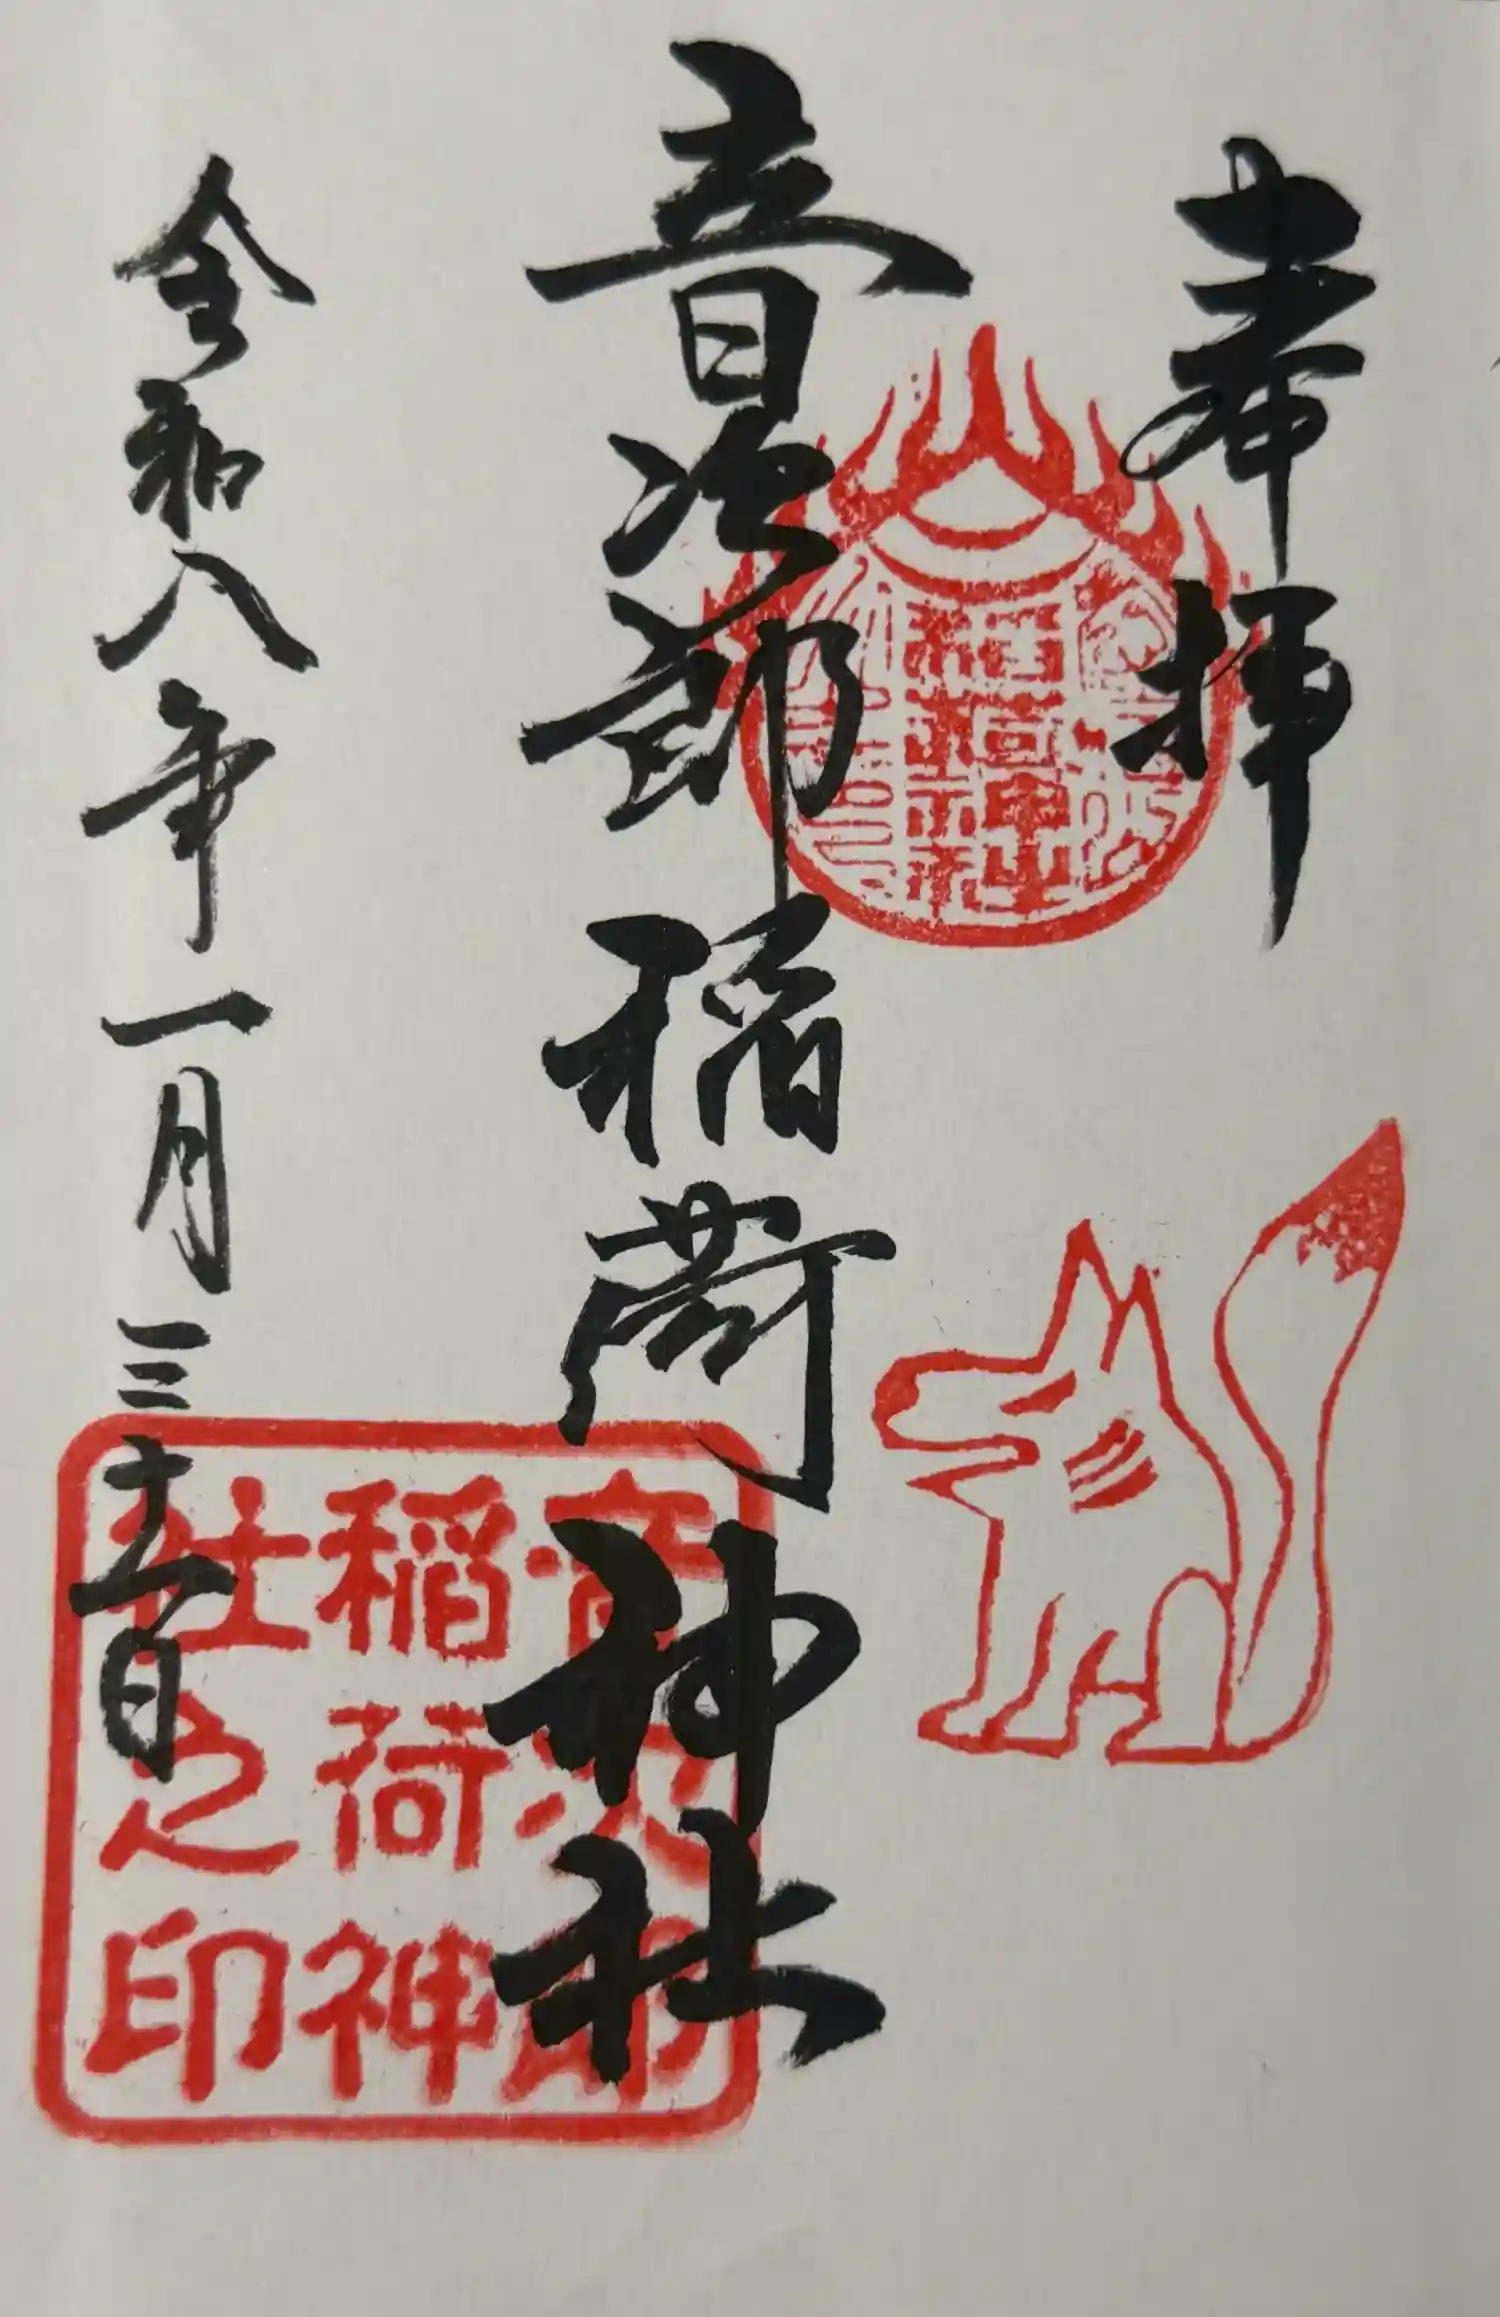 奉拝
音次郎稲荷神社
令和八年一月三十一日
音次郎
稲荷神
社之印